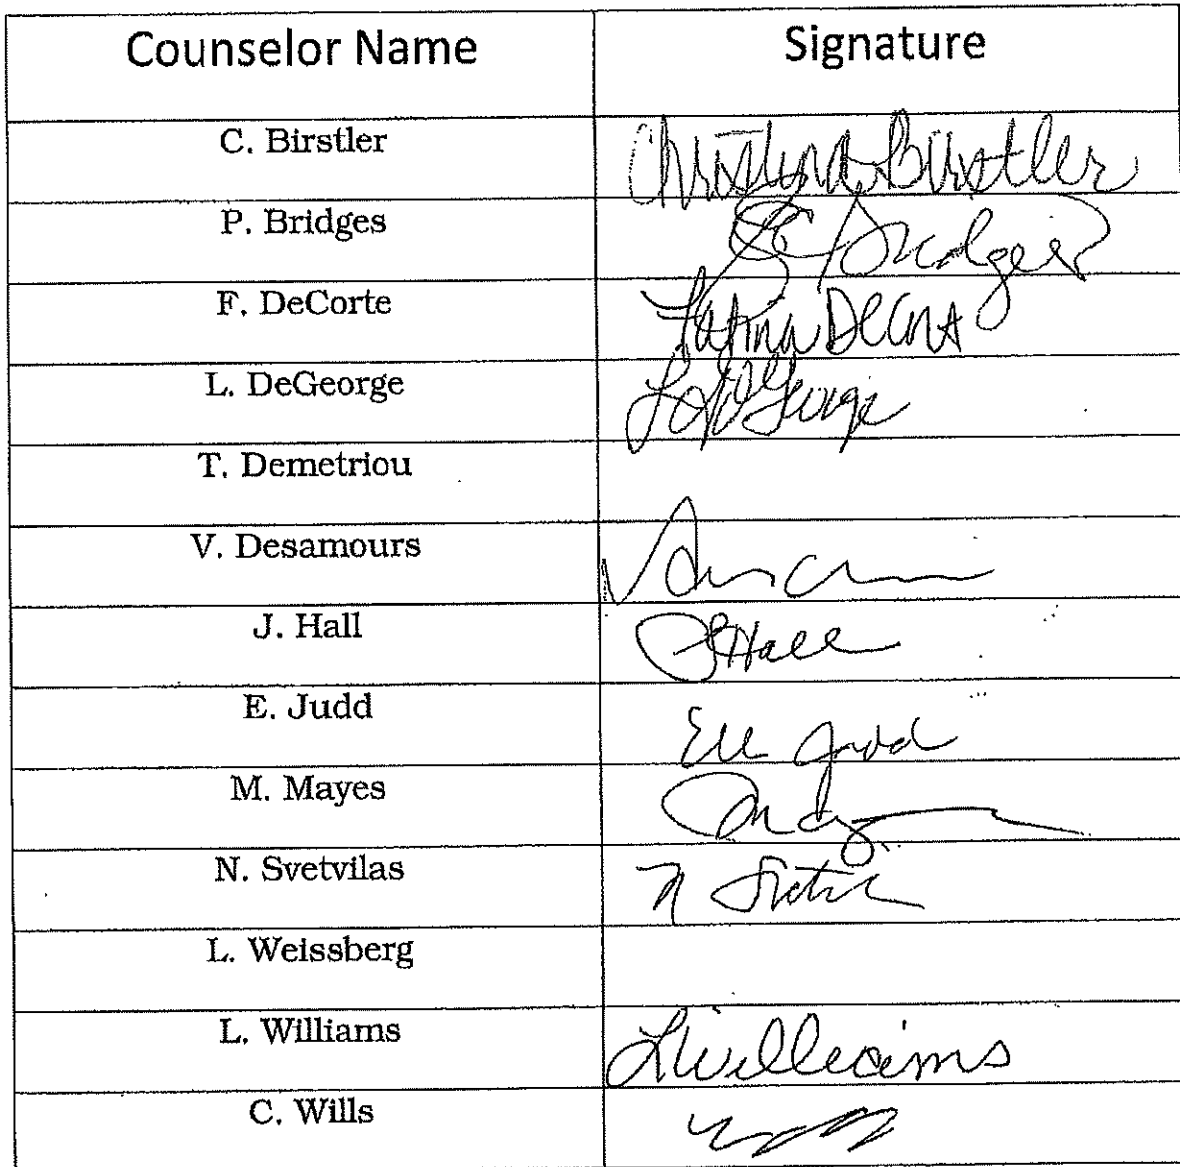 Counselor Name Signature
C. Birstler Christina Birstler
P. Bridges Bridges
F. DeCorte Fatima DeCorte
L. DeGeorge L DeGeorge
T. Demetriou
V. Desamours
J. Hall J Hall
E. Judd Judd
M. Mayes
N. Svetvilas N
L. Weissberg
L. Williams L Williams
C. Wills